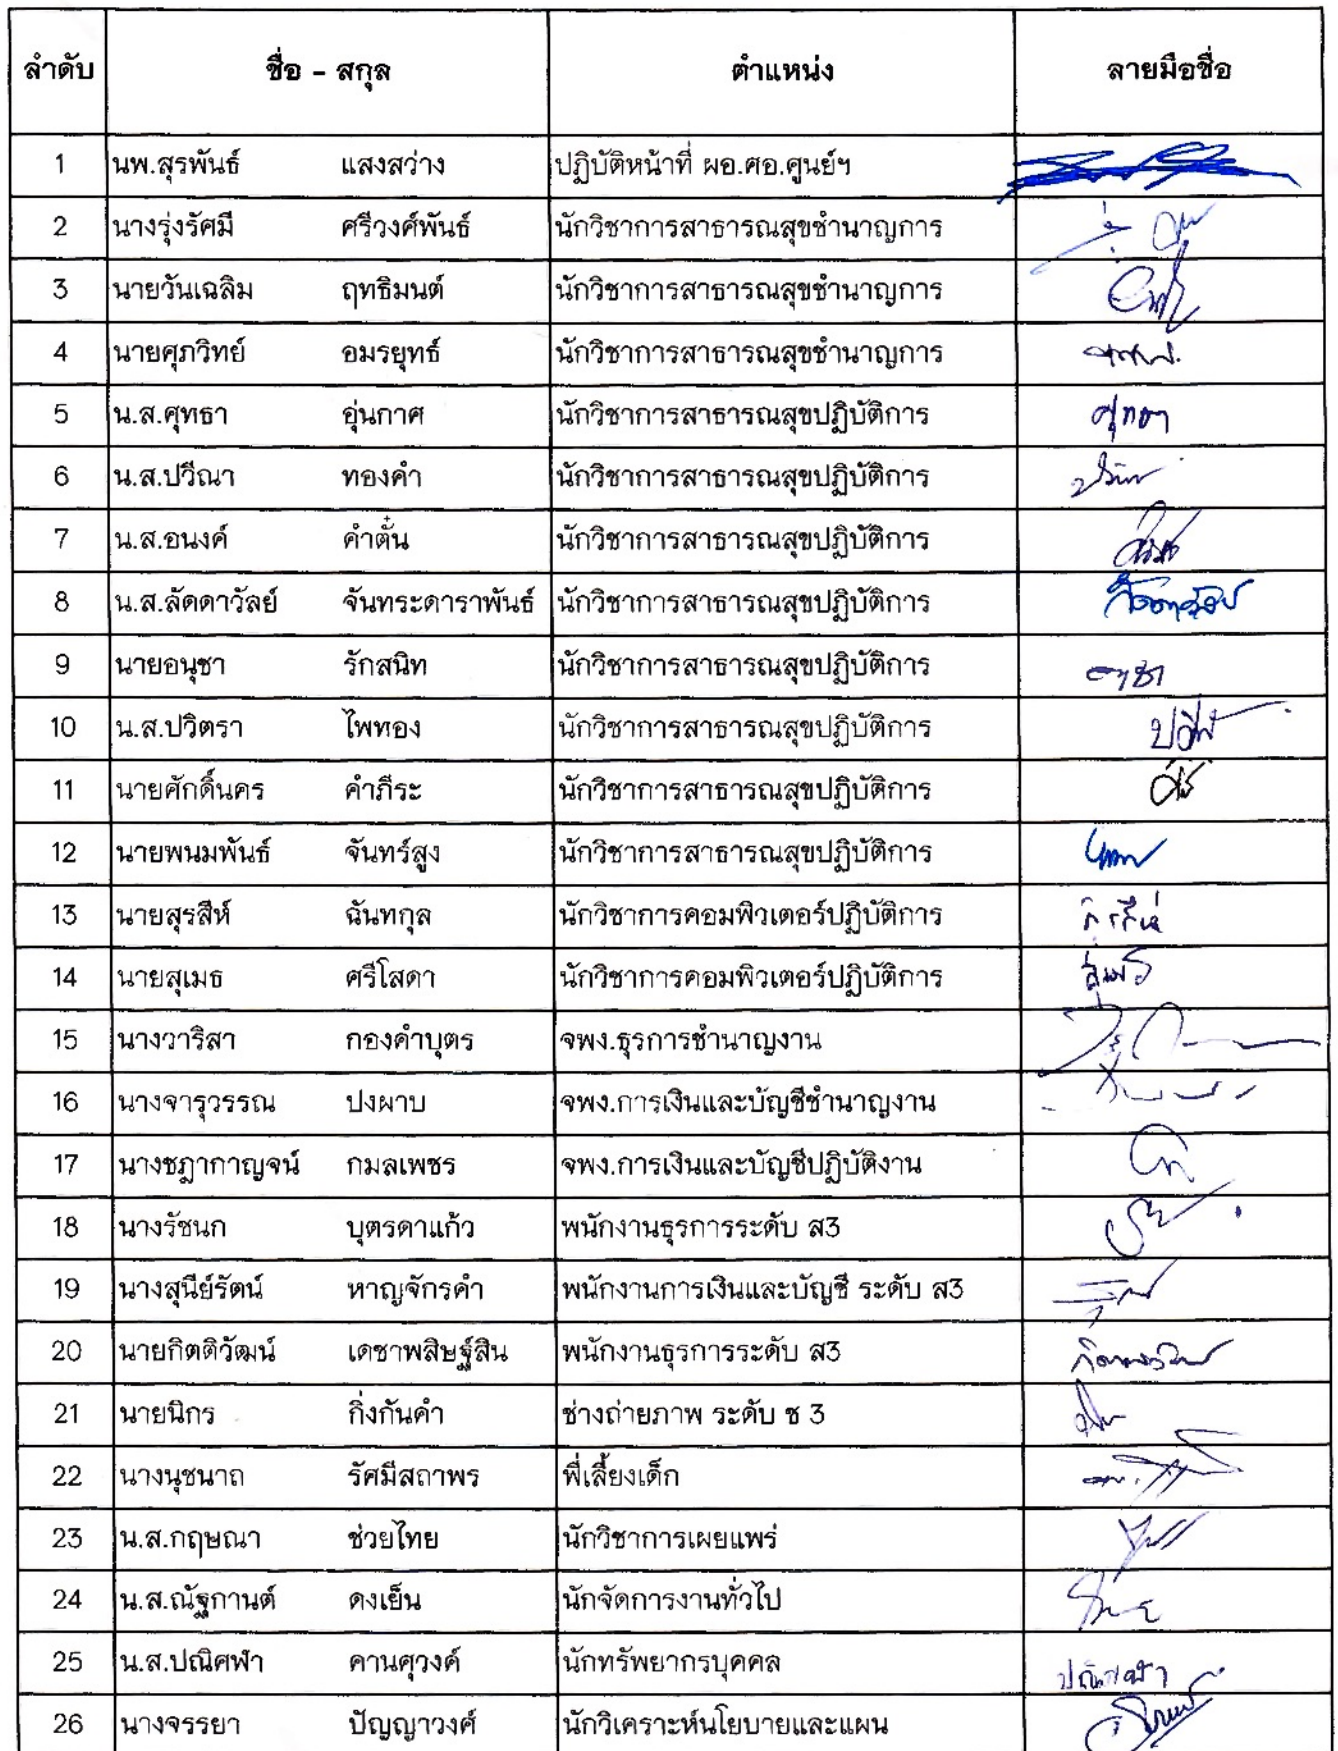 ลำดับ ชื่อ - สกุล ตำแหน่ง ลายมือชื่อ
1 นพ.สุรพันธ์ แสงสว่าง ปฏิบัติหน้าที่ ผอ.ศอ.ศูนย์ฯ
2 นางรุ่งรัศมี ศรีวงศ์พันธ์ นักวิชาการสาธารณสุขชำนาญการ
3 นายวันเฉลิม ฤทธิมนต์ นักวิชาการสาธารณสุขชำนาญการ
4 นายศุภวิทย์ อมรยุทธ์ นักวิชาการสาธารณสุขชำนาญการ
5 น.ส.ศุทธา อุ่นกาศ นักวิชาการสาธารณสุขปฏิบัติการ ศุทธา
6 น.ส.ปวีณา ทองคำ นักวิชาการสาธารณสุขปฏิบัติการ
7 น.ส.อนงค์ คำตั๋น นักวิชาการสาธารณสุขปฏิบัติการ
8 น.ส.ลัดดาวัลย์ จันทระดาราพันธ์ นักวิชาการสาธารณสุขปฏิบัติการ ลัดดาวัลย์
9 นายอนุชา รักสนิท นักวิชาการสาธารณสุขปฏิบัติการ
10 น.ส.ปวิตรา ไพทอง นักวิชาการสาธารณสุขปฏิบัติการ
11 นายศักดิ์นคร คำภีระ นักวิชาการสาธารณสุขปฏิบัติการ
12 นายพนมพันธ์ จันทร์สูง นักวิชาการสาธารณสุขปฏิบัติการ
13 นายสุรสีห์ ฉันทกุล นักวิชาการคอมพิวเตอร์ปฏิบัติการ สุรสีห์
14 นายสุเมธ ศรีโสดา นักวิชาการคอมพิวเตอร์ปฏิบัติการ สุเมธ
15 นางวาริสา กองคำบุตร จพง.ธุรการชำนาญงาน
16 นางจารุวรรณ ปงผาบ จพง.การเงินและบัญชีชำนาญงาน
17 นางชฎากาญจน์ กมลเพชร จพง.การเงินและบัญชีปฏิบัติงาน
18 นางรัชนก บุตรดาแก้ว พนักงานธุรการระดับ ส3
19 นางสุนีย์รัตน์ หาญจักรคำ พนักงานการเงินและบัญชี ระดับ ส3
20 นายกิตติวัฒน์ เดชาพสิษฐ์สิน พนักงานธุรการระดับ ส3
21 นายนิกร กิ่งกันคำ ช่างถ่ายภาพ ระดับ ช 3
22 นางนุชนาถ รัศมีสถาพร พี่เลี้ยงเด็ก
23 น.ส.กฤษณา ช่วยไทย นักวิชาการเผยแพร่
24 น.ส.ณัฐกานต์ ดงเย็น นักจัดการงานทั่วไป
25 น.ส.ปณิศฬา คานศุวงค์ นักทรัพยากรบุคคล ปณิศฬา
26 นางจรรยา ปัญญาวงศ์ นักวิเคราะห์นโยบายและแผน